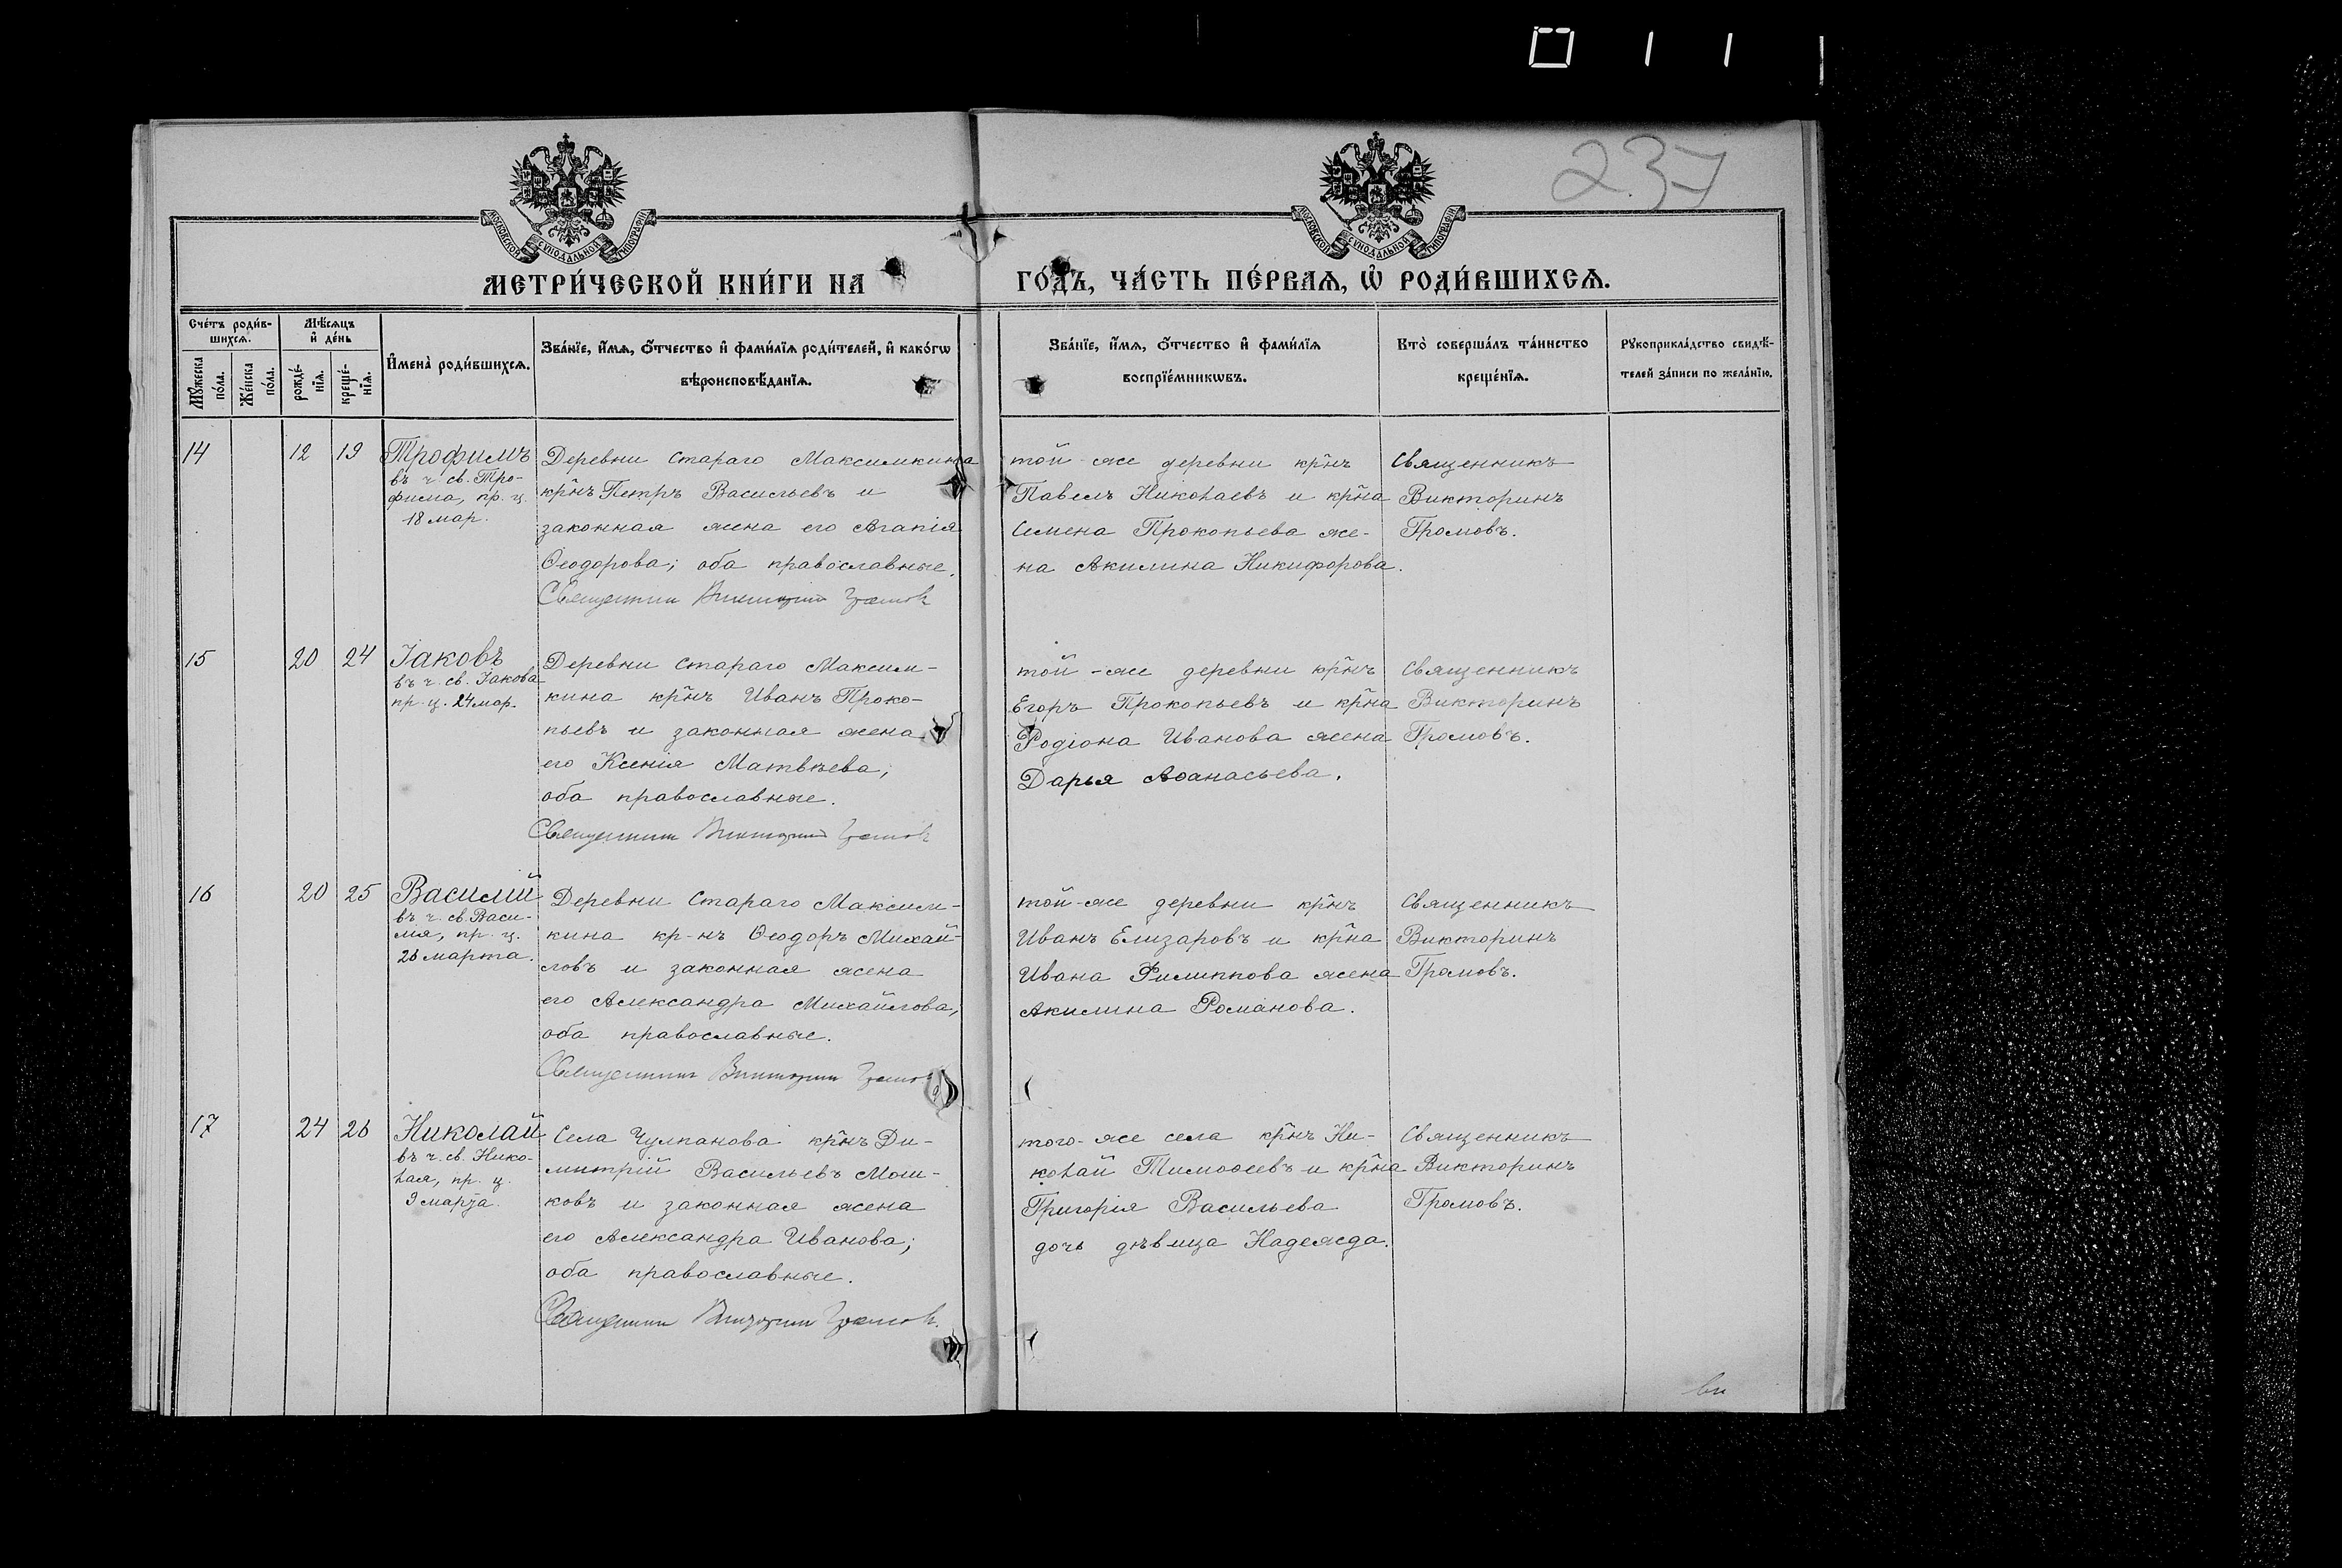 237
МОСКОВСКОЙ СѴНОДАЛЬНОЙ ТИПОГРАФІИ
МОСКОВСКОЙ СѴНОДАЛЬНОЙ ТИПОГРАФІИ
МЕТРИ́ЧЕСКОЙ КНИ́ГИ НА ГО́ДЪ, ЧА́СТЬ ПЕ́РВАѦ, Ѡ҆ РОДИ́ВШИХСѦ.
Сче́тъ роди́в-
шихсѧ.
Мꙋ́жеска
по́ла.
Же́нска
по́ла.
Мѣ́сѧцъ
и҆ де́нь
рожде́-
нїѧ.
креще́-
нїѧ.
И҆мена̀ роди́вшихсѧ.
Зва́нїе, и҆́мѧ, ѻ҆́тчество и҆ фами́лїѧ роди́телей, и҆ како́гѡ
вѣроисповѣ́данїѧ.
Зва́нїе, и҆́мѧ, ѻ҆́тчество и҆ фами́лїѧ
воспрїе́мникѡвъ.
Кто̀ соверша́лъ та́инство
креще́нїѧ.
Рꙋкоприкла́дство свидѣ́-
телей за́писи по жела́нїю.
14
12
19
Трофимъ
въ ч. св. Тро-
фима, пр. ц.
18 мар.
Деревни Стараго Максимкина
кр̃нъ Петръ Васильевъ и
законная жена его Агапія
Ѳеодорова; оба православные.
Священник Викторин Громов
той-же деревни кр̃нъ
Павелъ Николаевъ и кр̃на
Семена Прокопьева же-
на Акилина Никифорова.
Священникъ
Викторинъ
Громовъ.
15
20
24
Іаковъ
въ ч. св. Іакова
пр. ц. 24 мар.
Деревни Стараго Максим-
кина кр̃нъ Иванъ Проко-
пьевъ и законная жена
его Ксенія Матвѣева;
оба православные.
Священник Викторин Громов
той-же деревни кр̃нъ
Егоръ Прокопьевъ и кр̃на
Родіона Иванова жена
Дарья Аѳанасьева.
Священникъ
Викторинъ
Громовъ.
16
20
25
Василій
въ ч. св. Васи-
лія, пр. ц.
26 марта.
Деревни Стараго Максим-
кина кр-нъ Ѳеодоръ Михай-
ловъ и законная жена
его Александра Михайлова,
оба православные.
Священник Викторин Громов
той-же деревни кр̃нъ
Иванъ Елизаровъ и кр̃на
Ивана Филиппова жена
Акилина Романова.
Священникъ
Викторинъ
Громовъ.
17
24
26
Николай
въ ч. св. Нико-
лая, пр. ц.
9 марта.
Села Чулпанова кр̃нъ Ди-
митрій Васильевъ Мош-
ковъ и законная жена
его Александра Иванова;
оба православные.
Священник Викторин Громов.
того-же села кр̃нъ Ни-
колай Тимоѳеевъ и кр̃на
Григорія Васильева
дочь дѣвица Надежда.
Священникъ
Викторинъ
Громовъ.